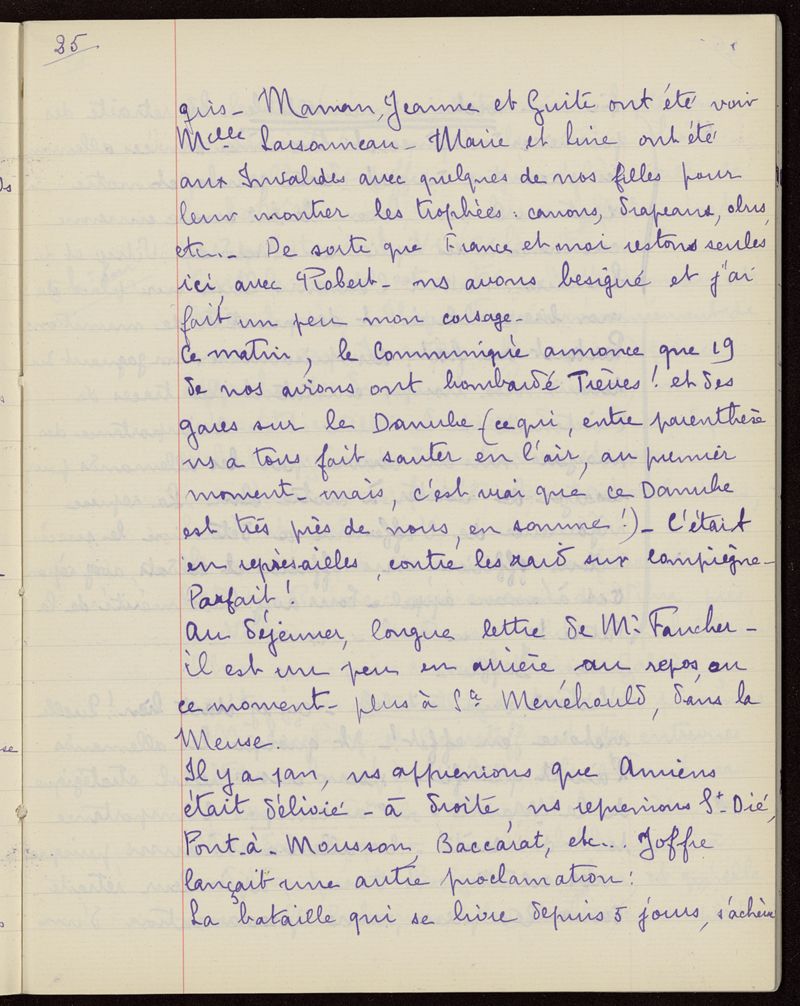 25
gris - Maman, Jeanne et Guite ont été voir
Melle Larsonneau - Marie et line ont été
aux Invalides avec quelques de nos filles pour
leur montrer les trophées : canons, drapeaux, obus,
etc... De sorte que France et moi restons seules
ici, avec Robert - ns avons besigué et j'ai
fait un peu mon corsage -
Ce matin, le Communiqué annonce que 19
de nos avions ont bombardé Trèves ! et des
gares sur le Danube (ce qui, entre parenthèse
ns a tous fait sauter en l'air, au premier
moment - mais, c'est vrai que ce Danube
est très près de nous, en somme !) - C'était
en représailles, contre les raid sur Compiègne -
Parfait !
Au déjeuner, longue lettre de Mr Faucher -
il est un peu en arrière, au repos, en
ce moment - plus à Ste Menéhould, dans la
Meuse.
Il y a 1 an, ns apprenions que Amiens
était délivré - à droite, ns reprenions St Dié,
Pont-à-Mousson, Baccarat, etc... Joffre
lançait une autre proclamation :
La bataille qui se livre depuis 5 jours, s'achève